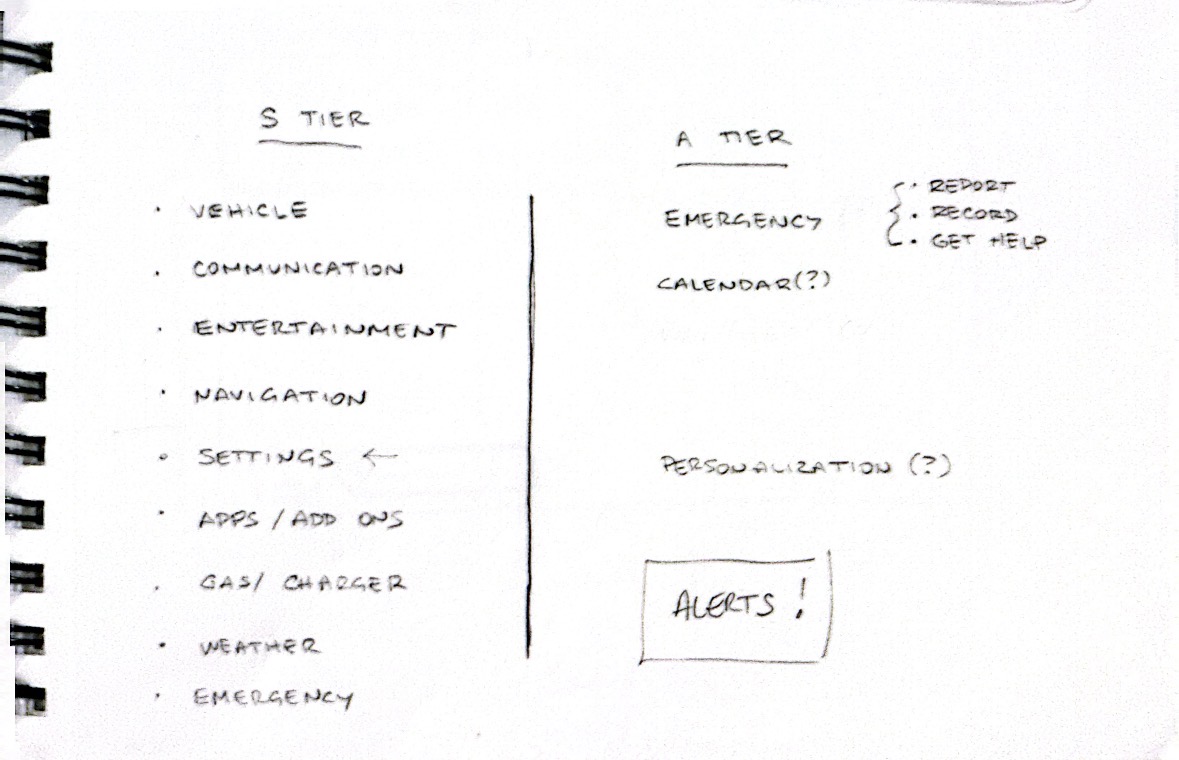 S TIER
· VEHICLE
· COMMUNICATION
· ENTERTAINMENT
· NAVIGATION
· SETTINGS ←
· APPS / ADD ONS
· GAS / CHARGER
· WEATHER
· EMERGENCY
A TIER
EMERGENCY
· REPORT
· RECORD
· GET HELP
CALENDAR (?)
PERSONALIZATION (?)
ALERTS !